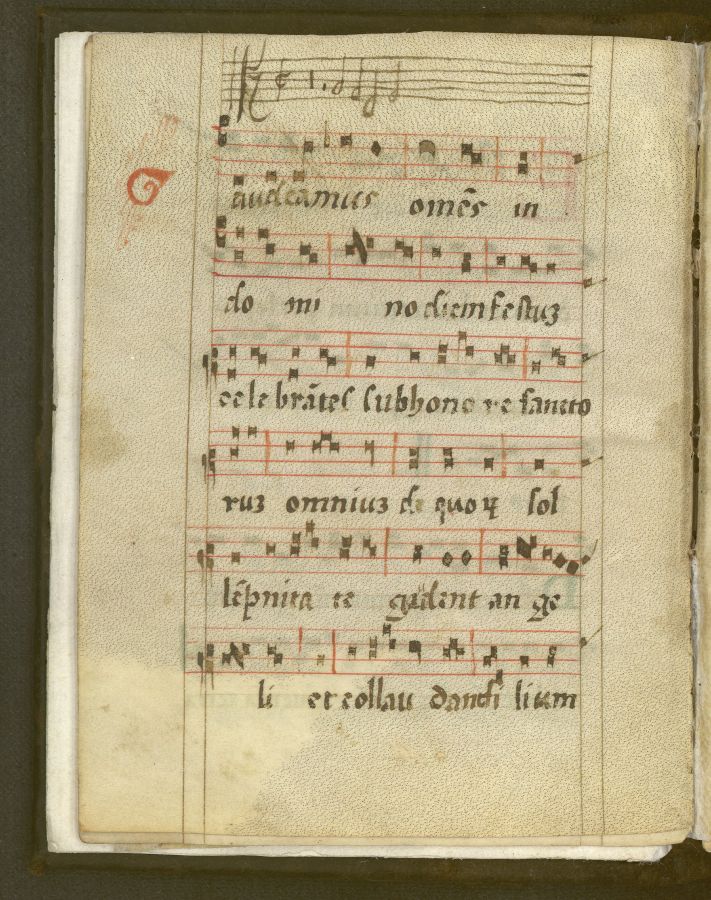 Gaudeamus om̄es in
do mi no diem festuʒ
cele brātes sub hono re sancto
ruʒ omniuʒ de quoꝝ sol
lēpnita te gudent an ge
li et collau dant fi lium